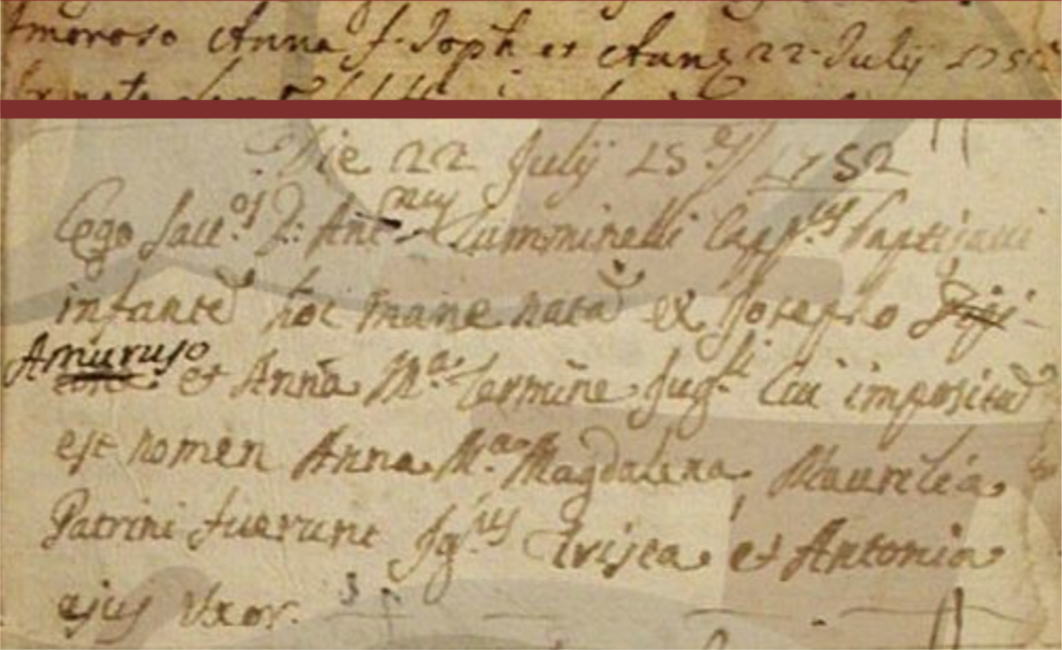 Amoroso Anna f. Joph et Anne 22 July 1752
Die 22 July 15 ej 1752
Ego Sac.os D: Ant.nus Cumminelli Capp.us baptizavi
infante hoc mane nata ex Josepho
Amuruso et Anna M.a Termine Jug.li Cui impositu
est nomen Anna M.a Magdalena, Maurilia
Patrini fuerunt Ig.us Trisca et Antonia
ejus Uxor.